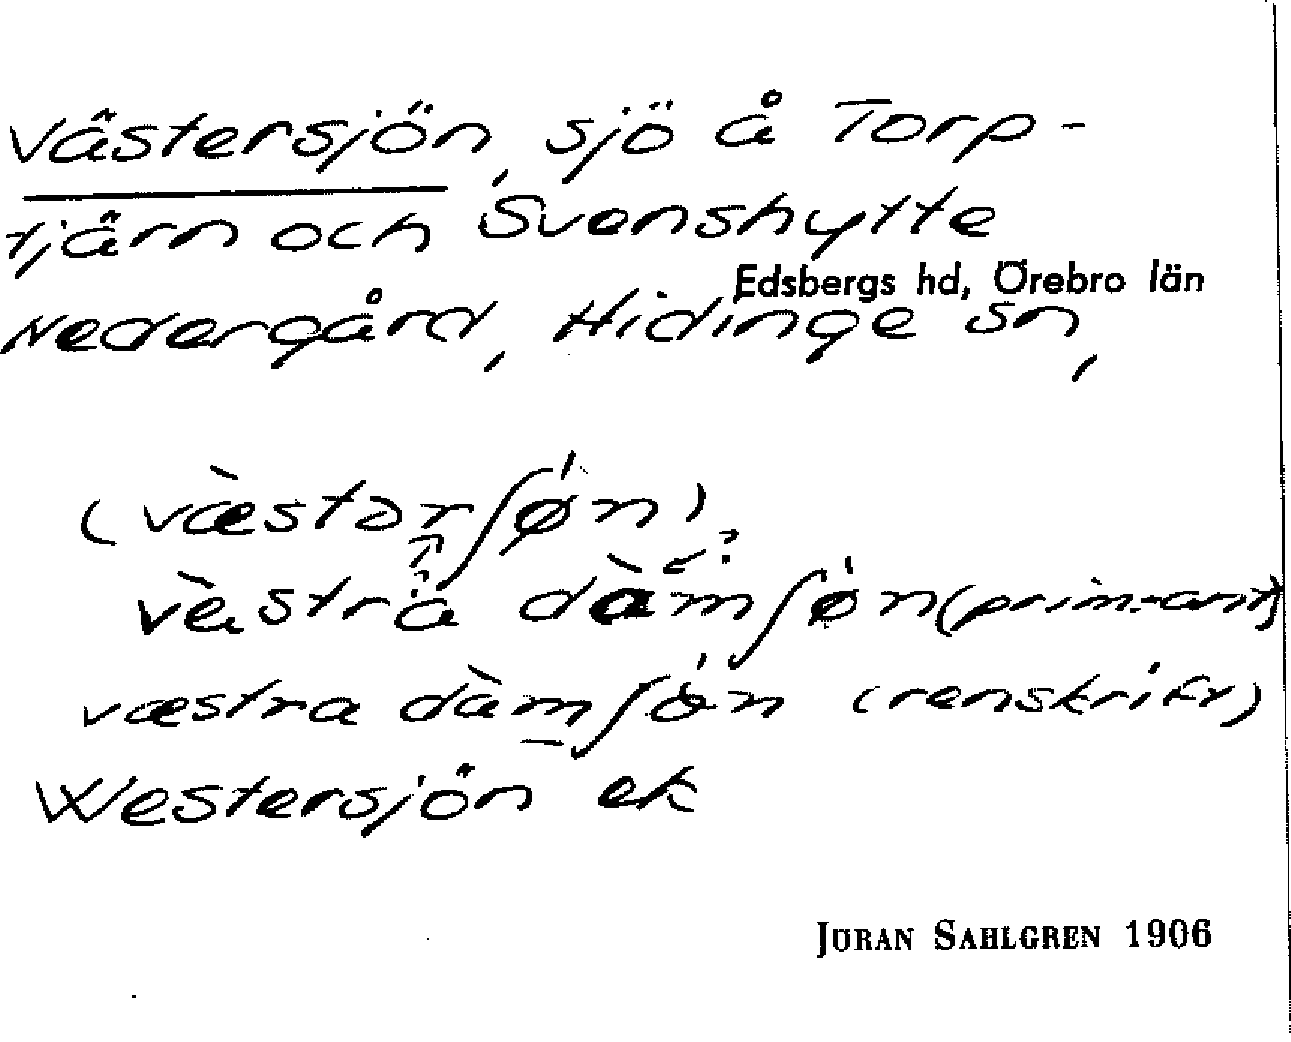 Västersjön, sjö å Torp-
tjärn och Svenshytte
Edsbergs hd, Örebro län
Nedergård, Hidinge sn,
(væ̀stər ʃø̀n)
vè̀strä dàmʃøn (prim.-ant)
væstra dàmʃòn (renskrift)
Westersjön ek
JÖRAN SAHLGREN 1906